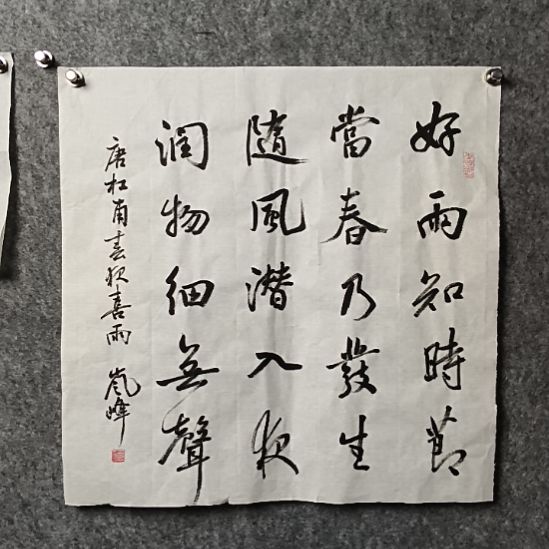 好雨知時節
當春乃發生
隨風潜入夜
润物细無聲
唐杜甫春夜喜雨 嵐峰